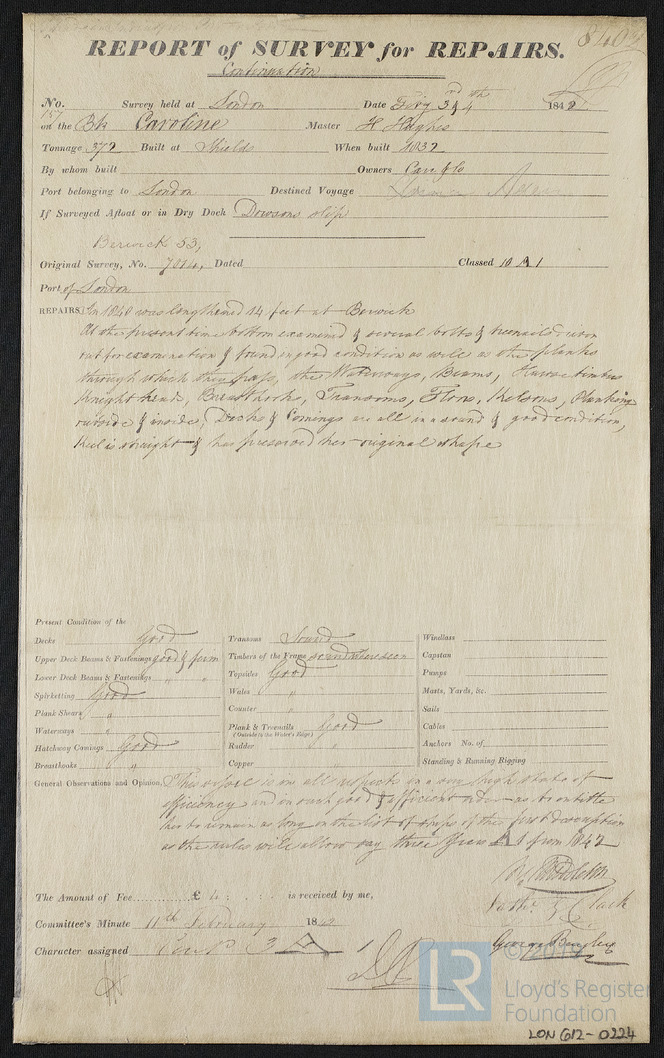 8404
REPORT of SURVEY for REPAIRS.
Continuation
No. 157 Survey held at London Date Feby 3rd & 4th 1842
on the Bk Caroline Master H Hughes
Tonnage 372 Built at Shields When built 1832
By whom built Owners Carr & Co
Port belonging to London Destined Voyage
If Surveyed Afloat or in Dry Dock Dowsons slip
Berwick 53,
Original Survey, No. 7014, Dated Classed 10 A 1
Port of London
REPAIRS In 1840 was lengthened 14 feet at Berwick
At the present time bottom examined & several bolts & treenails driven
out for examination & found in good condition as well as the planks
through which they pass, the Waterways, Beams, Hawse timbers
Knight heads, Breasthooks, Transoms, Floors, Kelsons, Planking
outside & inside, Decks & Comings are all in a sound & good condition,
Keel is straight & has preserved her original shape
Present Condition of the
Decks Good
Upper Deck Beams & Fastenings good & firm
Lower Deck Beams & Fastenings " "
Spirketting Good
Plank Shears "
Waterways "
Hatchway Comings Good
Breasthooks "
Transoms Sound
Timbers of the Frame sound where seen
Topsides Good
Wales "
Counter "
Plank & Treenails Good
(Outside to the Water's Edge)
Rudder "
Copper
Windlass
Capstan
Pumps
Masts, Yards, &c.
Sails
Cables
Anchors No. of
Standing & Running Rigging
General Observations and Opinion, This vessel is in all respects in a very high state of
efficiency and in such good & efficient order as to entitle
her to remain as long on the list of ships of the first description
as the rules will allow say three years A 1 from 1842
The Amount of Fee £ 4 : is received by me,
Committee's Minute 11th February 1842
Character assigned 3 A 1
Clark
George Bayley
© 2019
LR
Lloyd's Register
Foundation
LON 612-0224